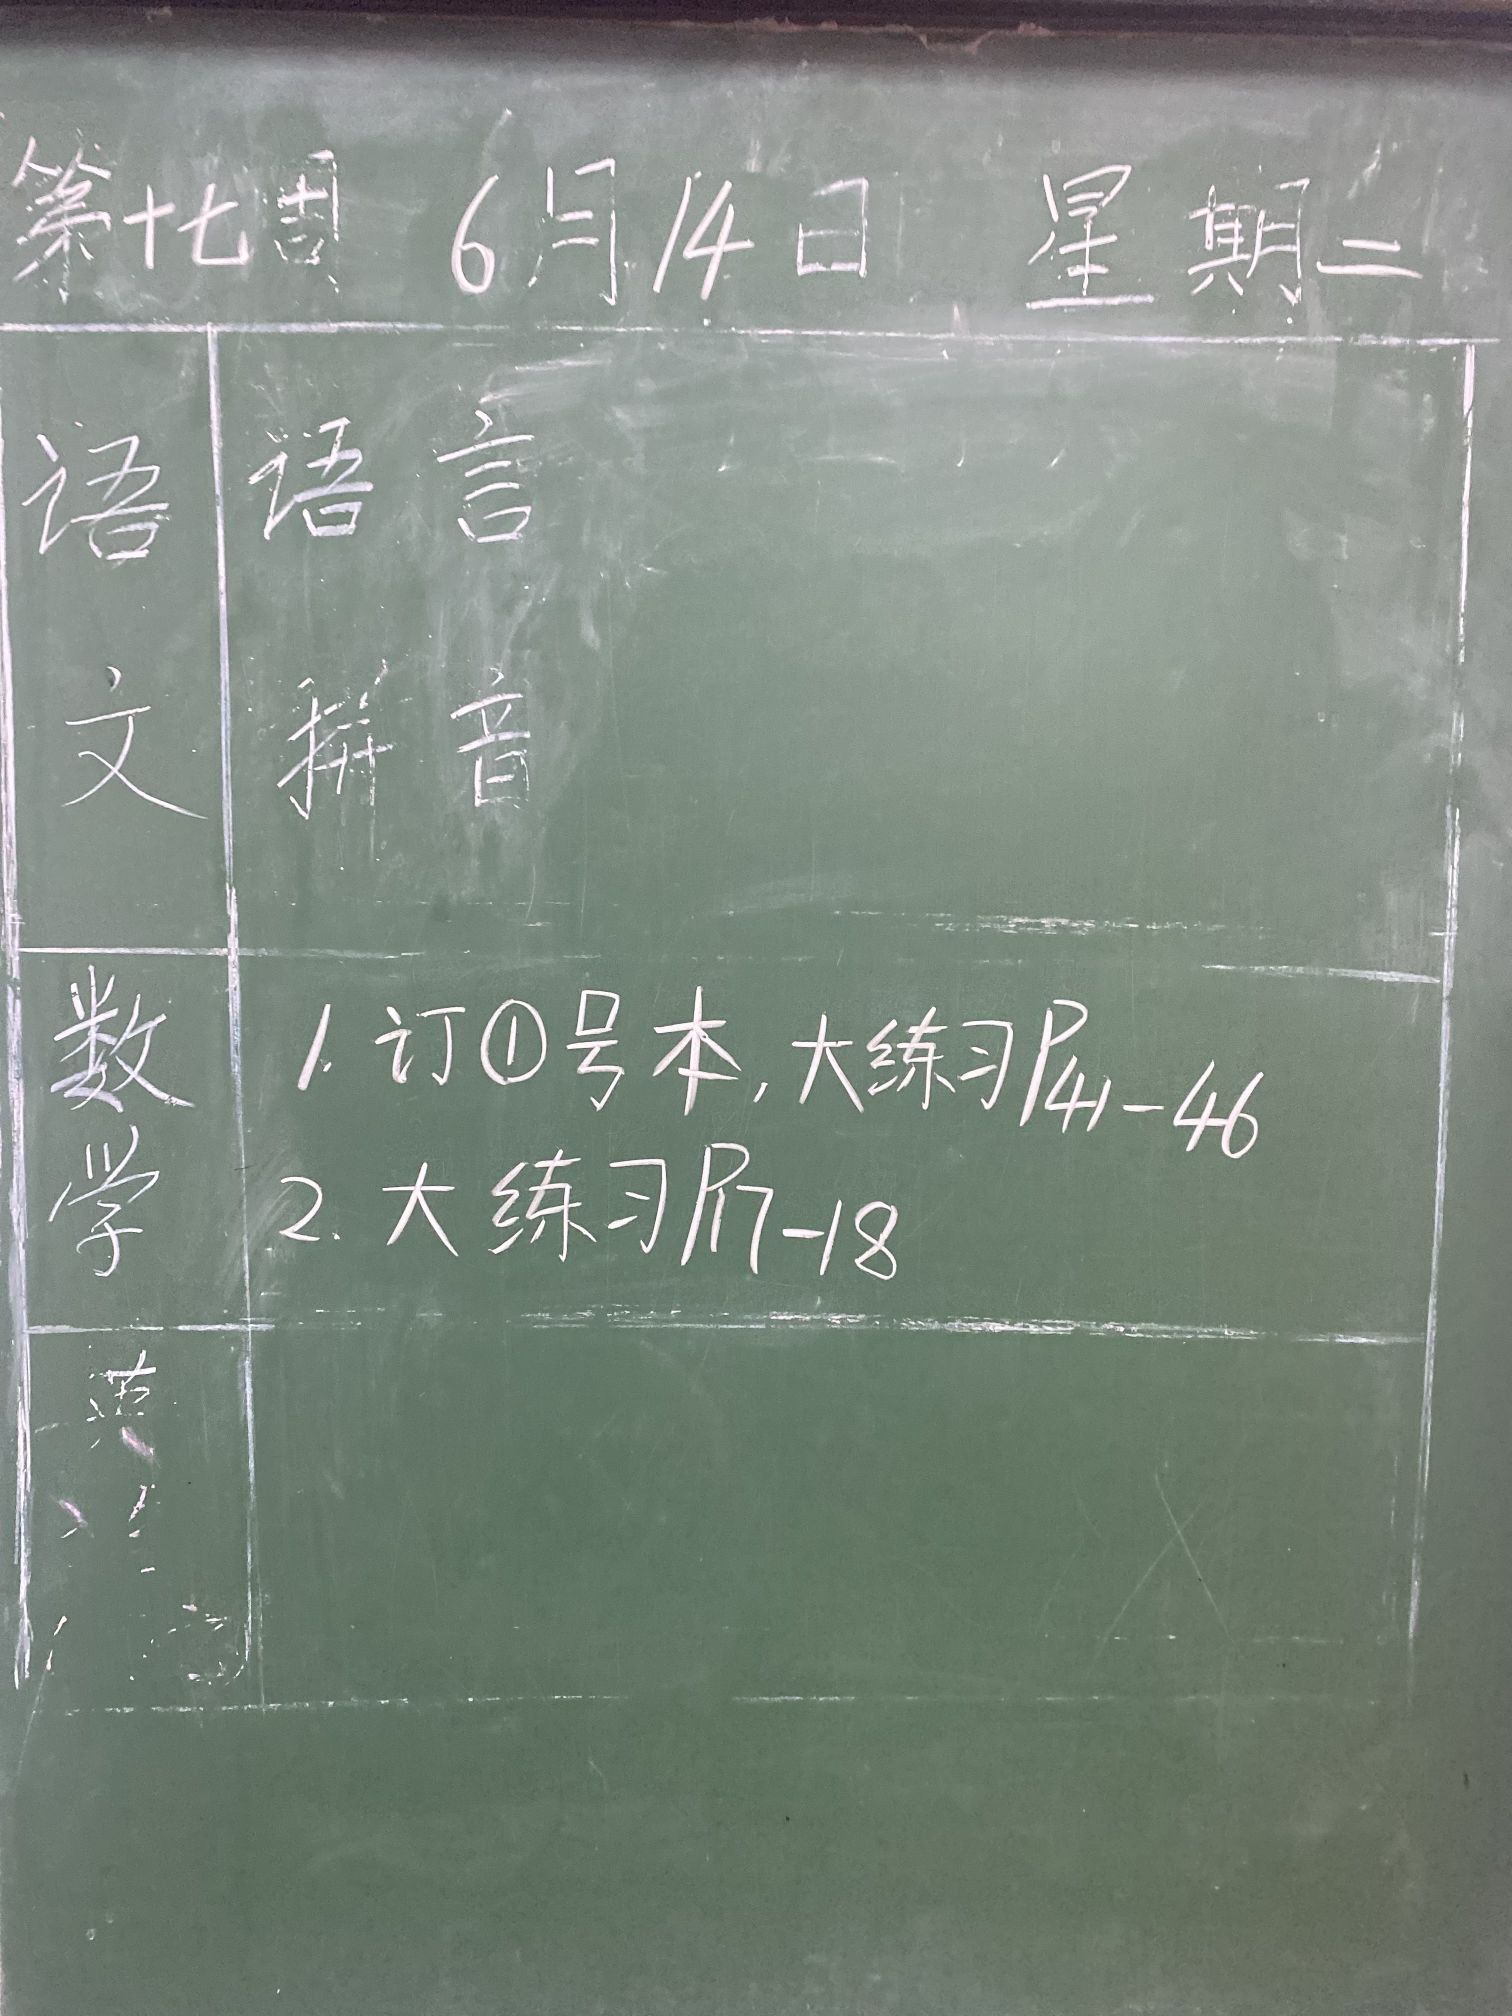 第十七周 6月14日 星期二
语文
语言
拼音
数学
1. 订①号本,大练习P41-46
2. 大练习P17-18
英